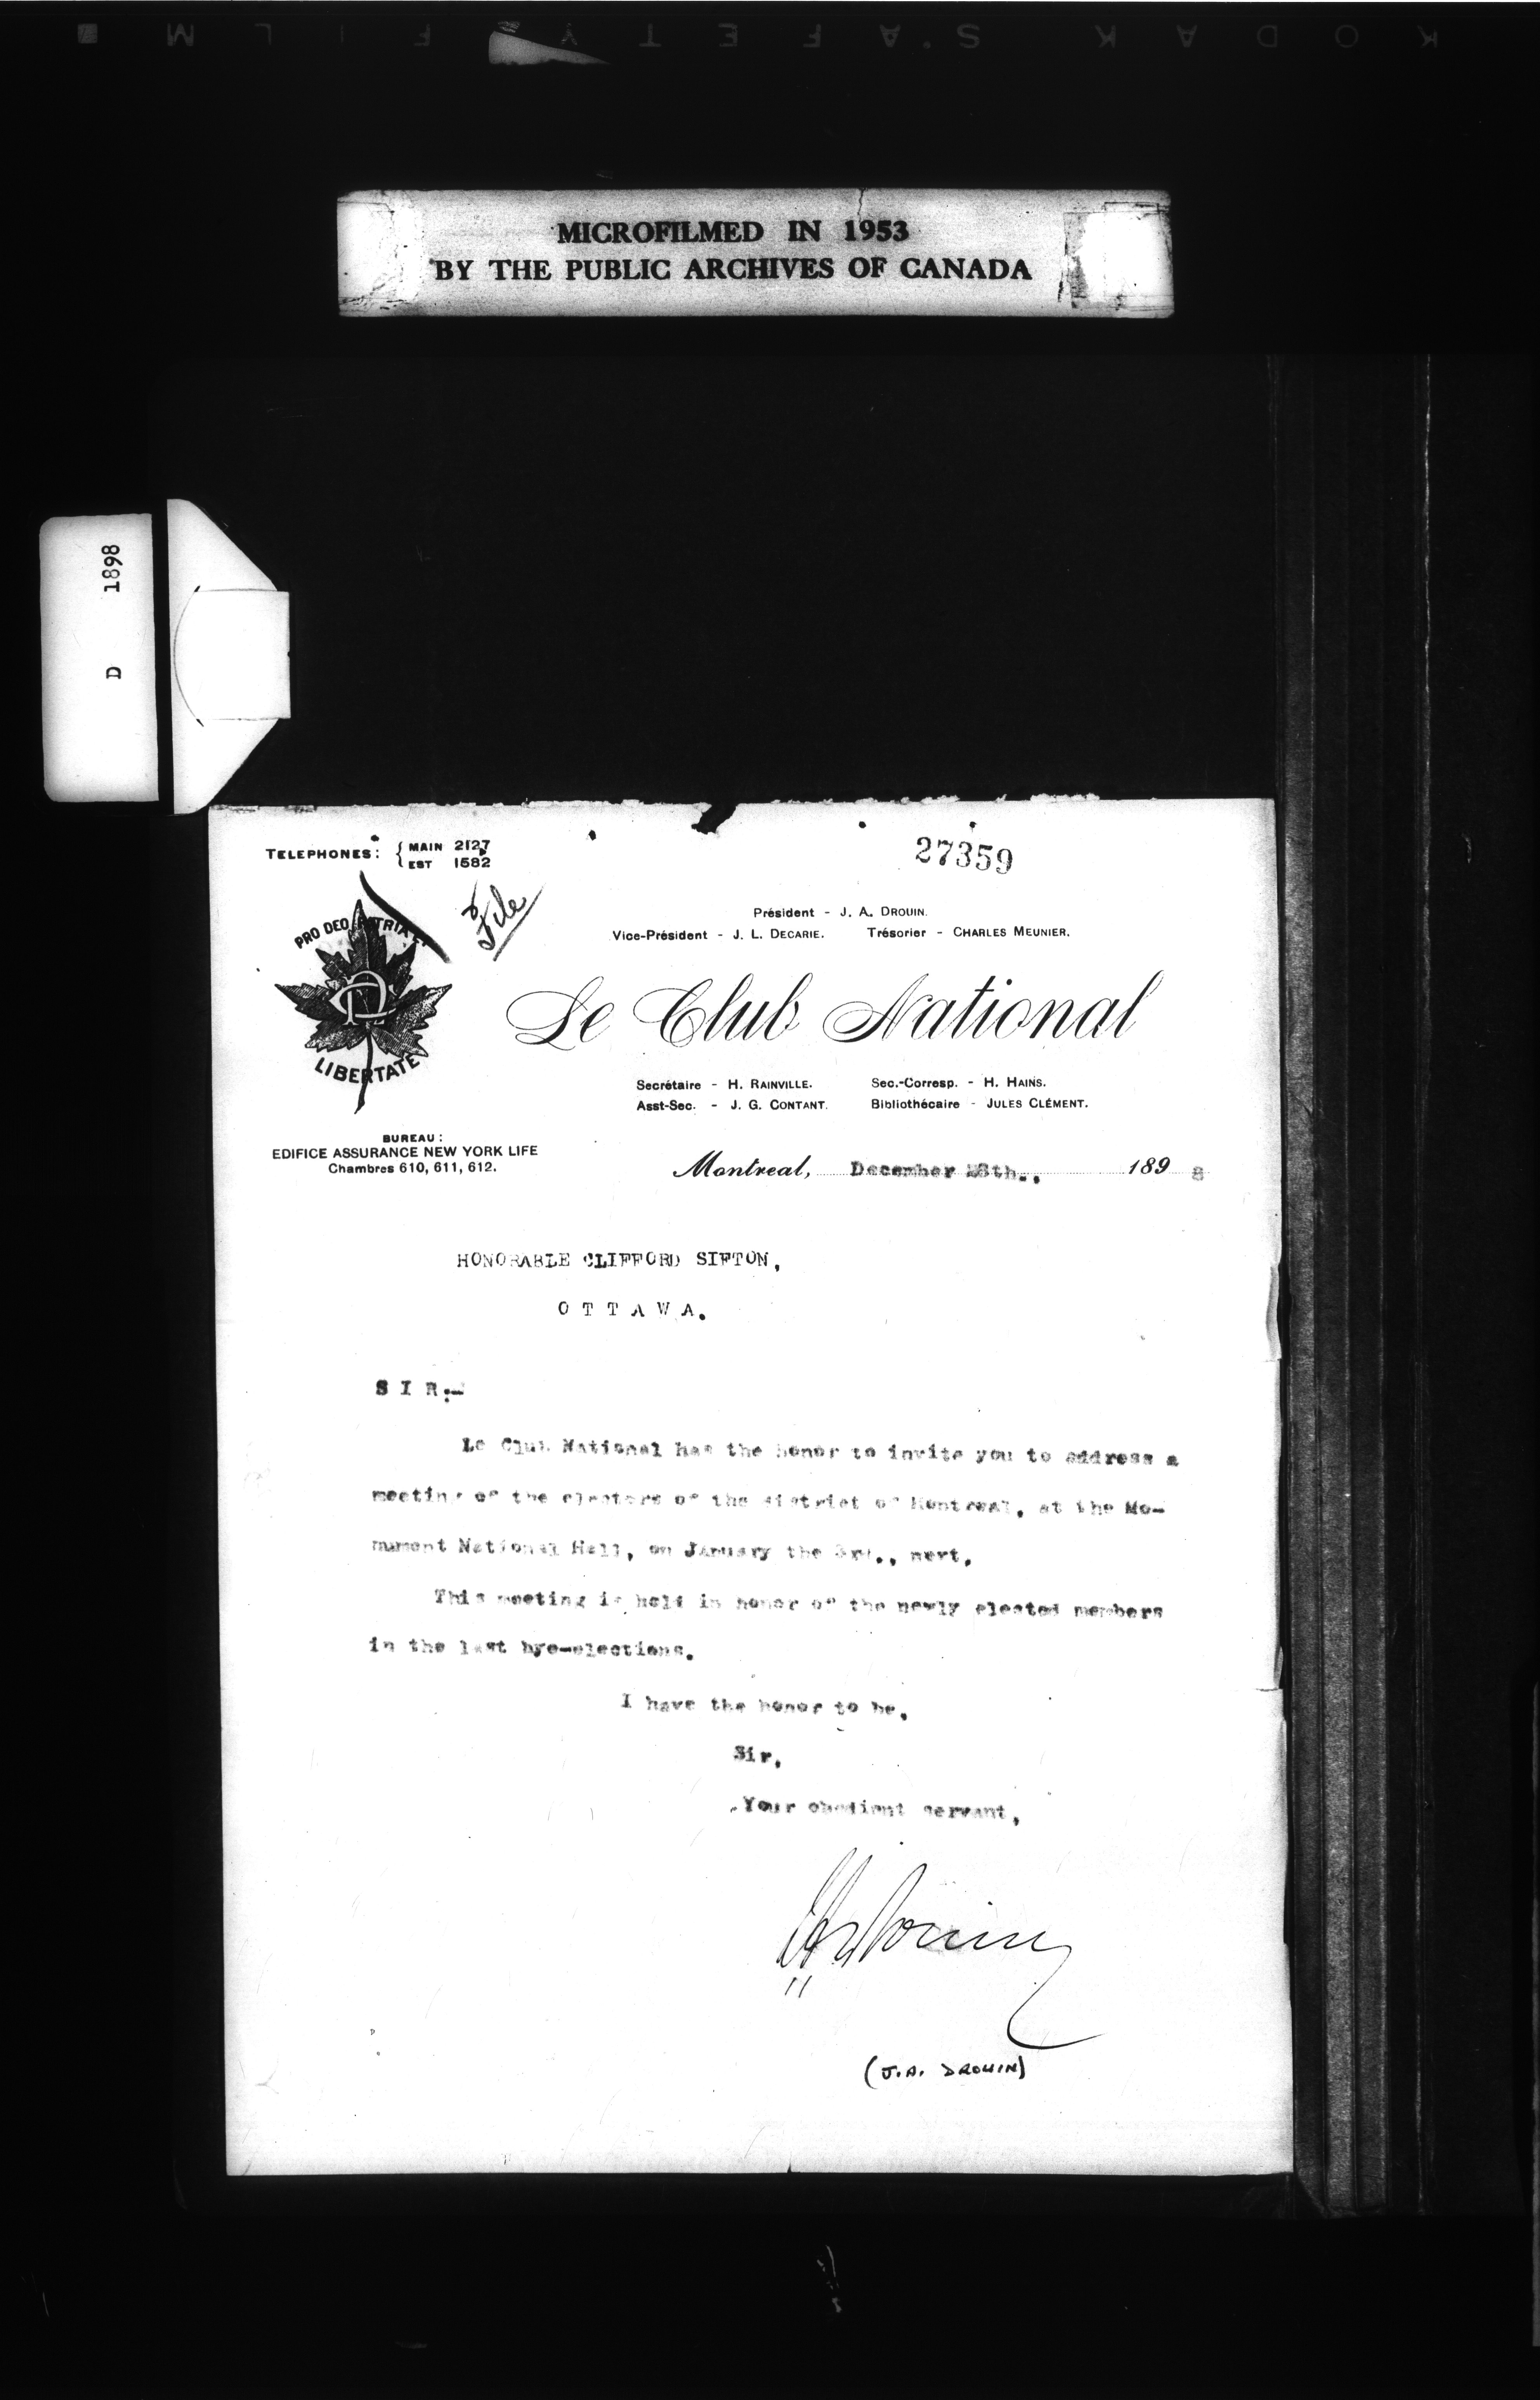 KODAK SAFETY FILM
MICROFILMED IN 1953
BY THE PUBLIC ARCHIVES OF CANADA
D 1898
TELEPHONES: { MAIN 2127
EST 1582
27359
File
Président - J. A. DROUIN.
Vice-Président - J. L. DECARIE. Trésorier - CHARLES MEUNIER.
PRO DEO PATRIA ET
LIBERTATE
Le Club National
Secrétaire - H. RAINVILLE. Sec.-Corresp. - H. HAINS.
Asst-Sec. - J. G. CONTANT. Bibliothécaire - JULES CLÉMENT.
BUREAU:
EDIFICE ASSURANCE NEW YORK LIFE
Chambres 610, 611, 612.
Montreal, December 28th., 1898
HONORABLE CLIFFORD SIFTON,
O T T A W A.
S I R:-
Le Club National has the honor to invite you to address a
meeting of the electors of the district of Montreal, at the Mo-
nument National Hall, on January the 3rd., next.
This meeting is held in honor of the newly elected members
in the last bye-elections.
I have the honor to be,
Sir,
Your obedient servant,
JADrouin
(J.A. DROUIN)